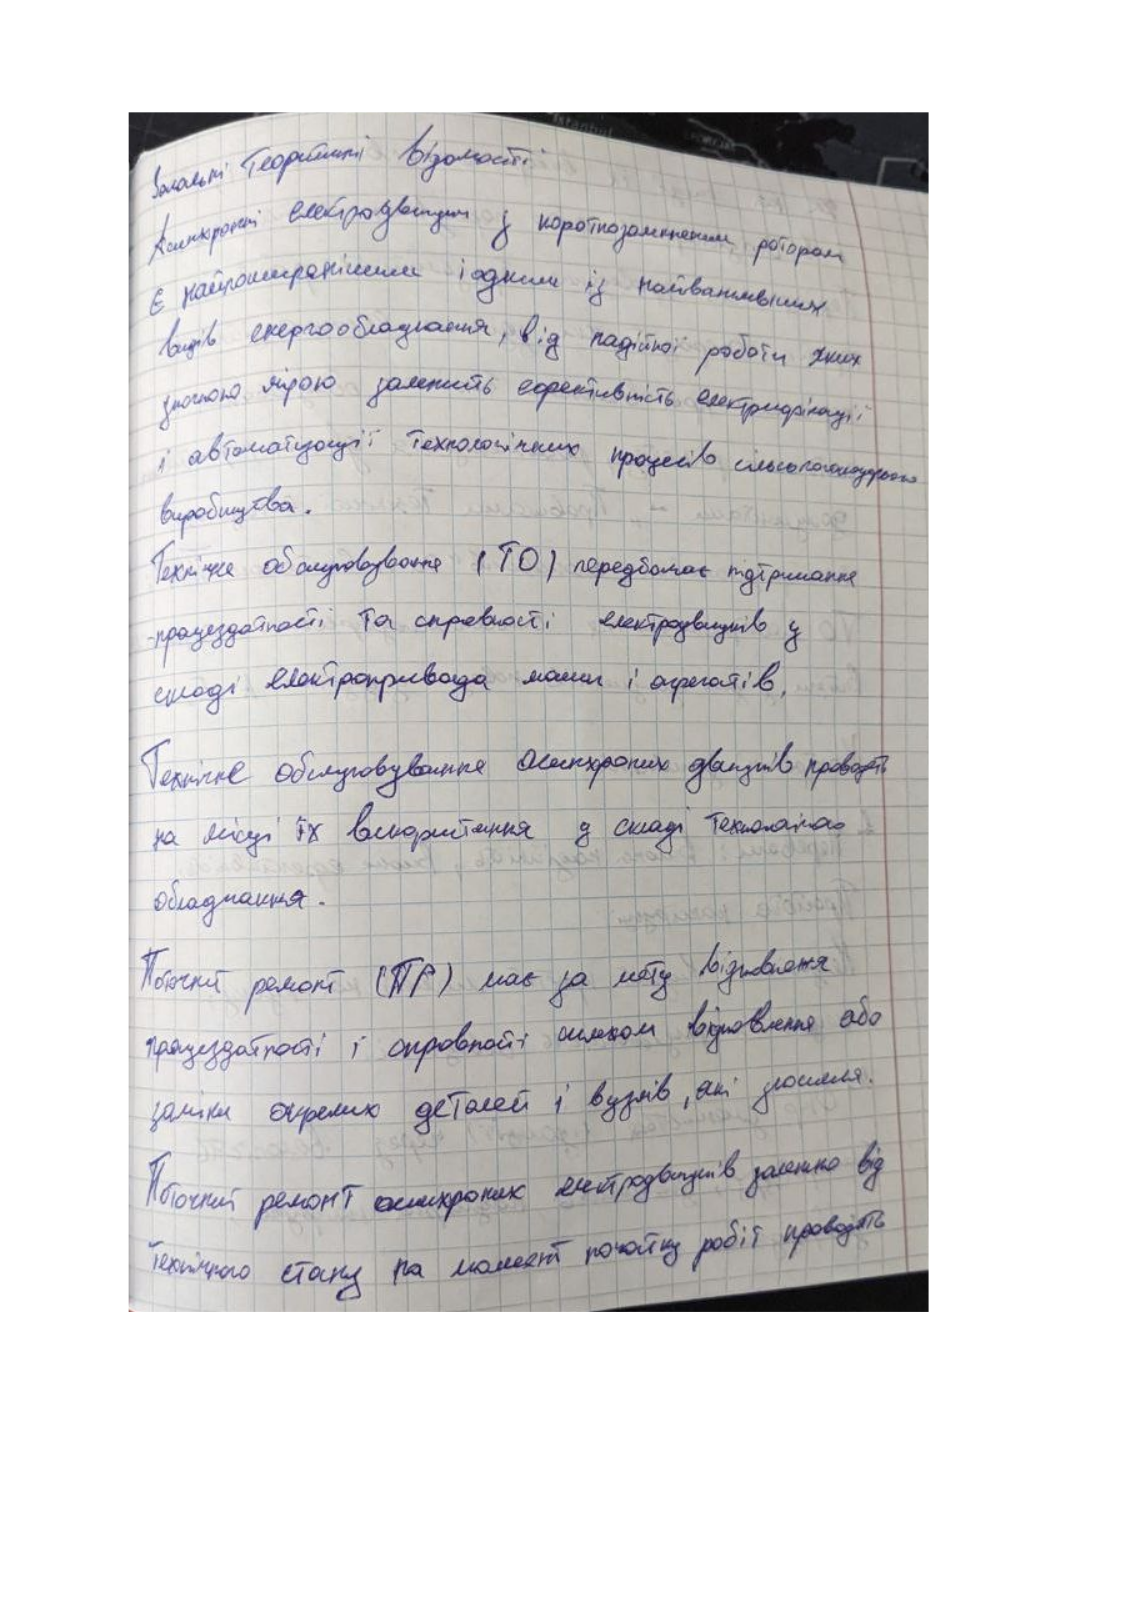 Загальні теоретичні відомості
Асинхронні електродвигуни з короткозамкненим ротором
є найпоширенішими і одними із найважливіших
видів енергообладнання, від надійної роботи яких
значною мірою залежить ефективність електрифікації
і автоматизації технологічних процесів сільськогосподарського
виробництва.
Технічне обслуговування (ТО) передбачає підтримання
працездатності та справності електродвигунів у
складі електропривода машин і агрегатів.
Технічне обслуговування асинхронних двигунів проводять
на місці їх використання у складі технологічного
обладнання.
Поточний ремонт (ПР) має за мету відновлення
працездатності і справності шляхом відновлення або
заміни окремих деталей і вузлів, які зносились.
Поточний ремонт асинхронних електродвигунів залежно від
технічного стану на момент початку робіт проводять